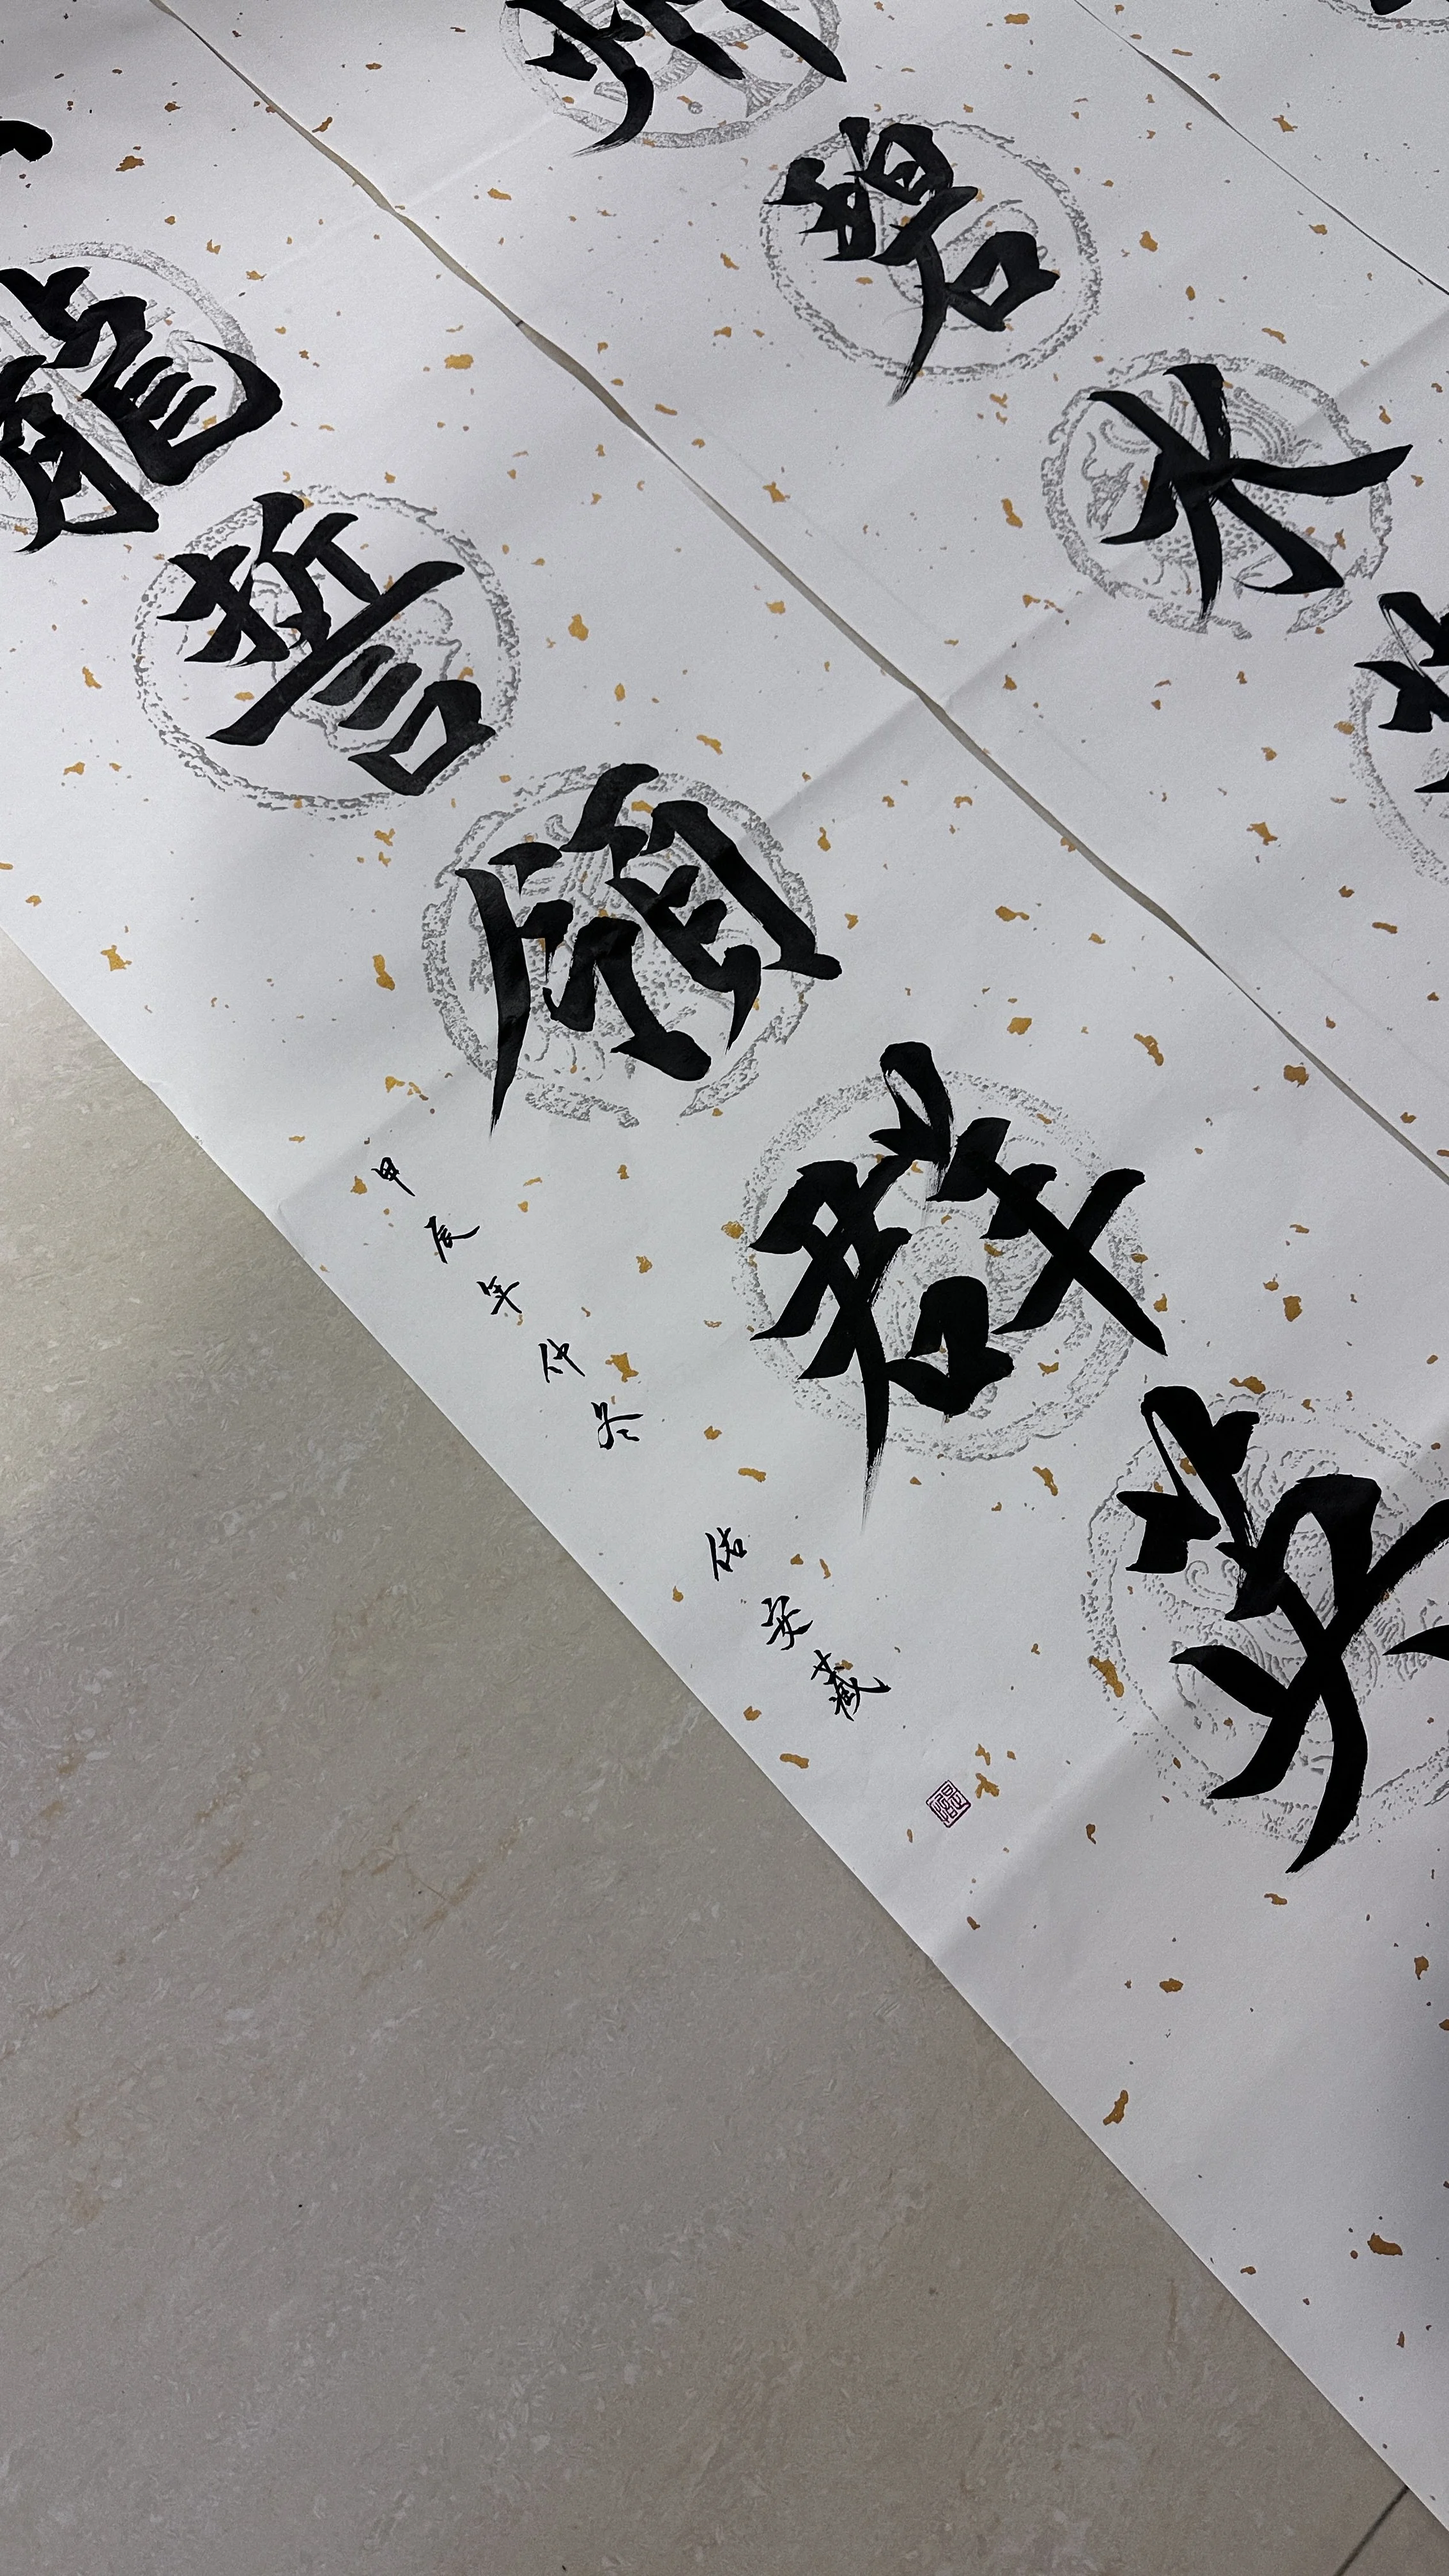 碧水
龍誓願群英
甲辰年仲冬 佑安藏